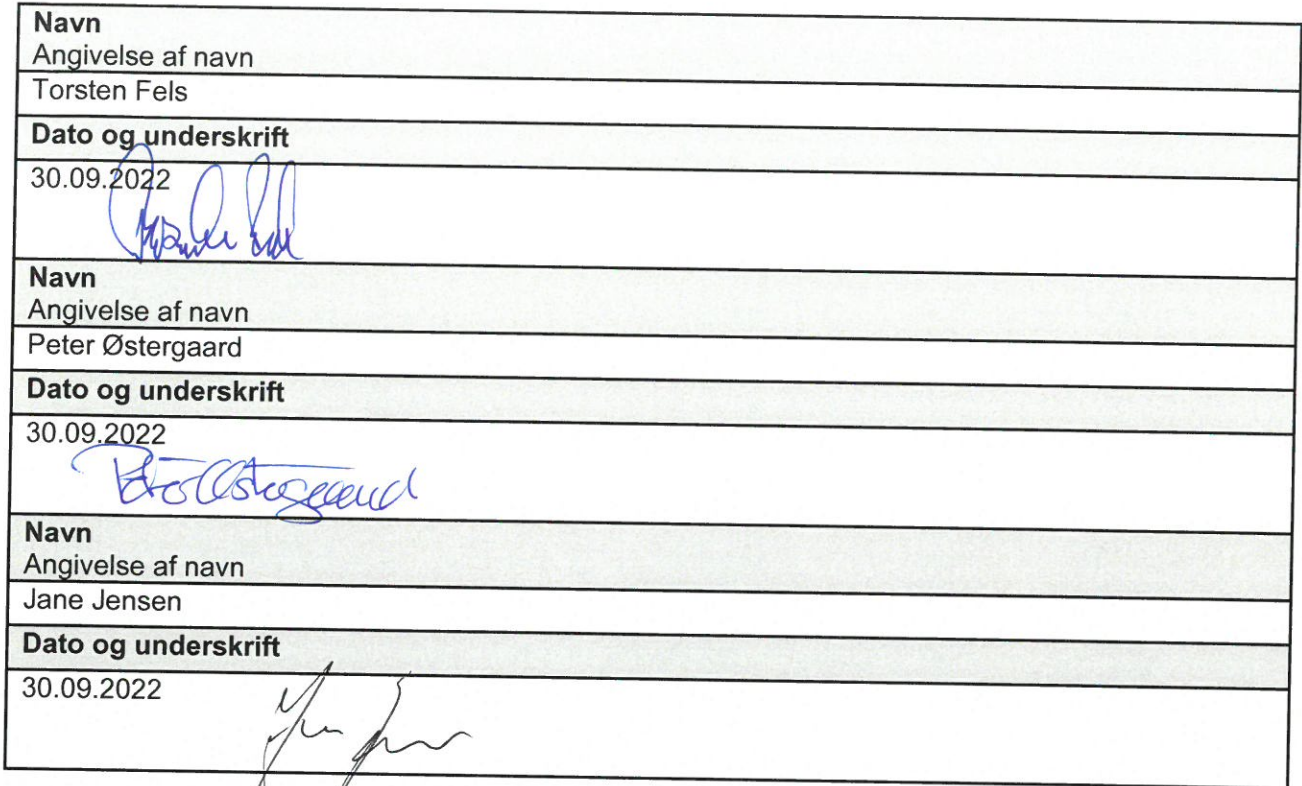 Navn
Angivelse af navn
Torsten Fels
Dato og underskrift
30.09.2022
Navn
Angivelse af navn
Peter Østergaard
Dato og underskrift
30.09.2022
Peter Østergaard
Navn
Angivelse af navn
Jane Jensen
Dato og underskrift
30.09.2022